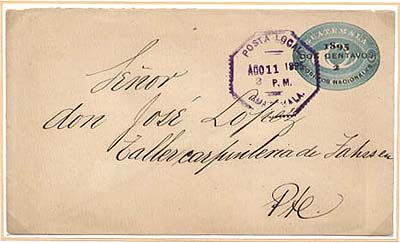 GUATEMALA
1895
DOS CENTAVOS
2
CORREOS NACIONALES
POSTA LOCAL
AGO 11 1895
2 P.M.
GUATEMALA.
Señor
don José López
Taller carpinteria de Jahssen
Pte.